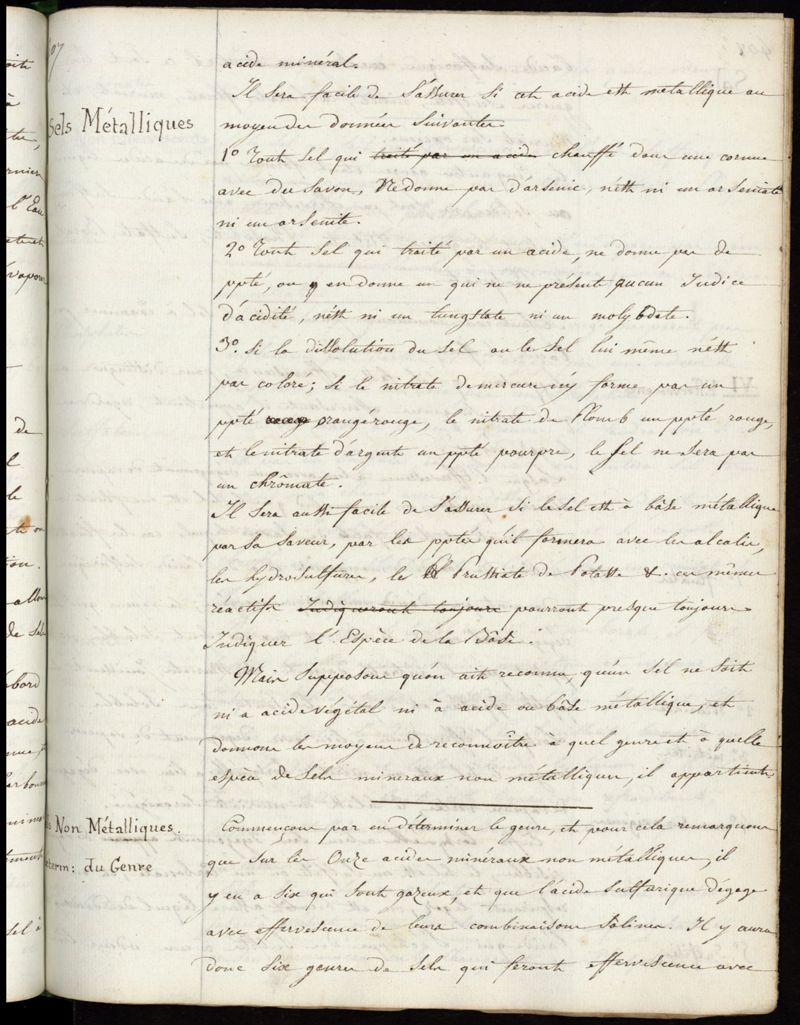 acide minéral.
Il sera facile de s'assurer si cet acide est metallique au
Sels Métalliques
moyen des données suivantes
1º Tout Sel qui traité par un acide chauffé dans une cornue
avec du savon, Ne donne pas d'arsenic, n'est ni un arseniate
ni un arsenite.
2º Tout Sel qui traité par un acide, ne donne pas de
ppté, ou y en donne un qui ne ne présent aucun Indice
d'acidité, n'est ni un tungstate ni un molybdate.
3º. si la dissolution du sel ou le sel lui même n'est
pas coloré; si le nitrate de mercure n'y forme pas un
ppté rouge orangé rouge, le nitrate de Plomb un ppté rouge,
et le nitrate d'argent un ppté pourpre, le sel ne sera pas
un chrômate.
Il sera aussi facile de s'assurer si le sel est à bâse métallique
par sa saveur, par les pptés qu'il formera avec les alcalis,
les hydrosulfures, le Prussiate de Potasse &. ces mêmes
réactifs Indiqueront toujours pourront presque toujours
Indiquer l'Espèce de la Bâse.
Mais Supposons qu'on ait reconnu, qu'un Sel ne soit
ni a acide végétal ni à acide ou bâse métallique, et
donnons les moyens de reconnoître à quel genre et à quelle
espèce de Sels mineraux non métalliques, il appartient
Non Métalliques.
Commençons par en déterminer le genre, et pour cela remarquons
que sur les Onze acides minéraux non métalliques, il
du Genre
y en a six qui sont gazeux, et que l'acide sulfurique dégage
avec effervescence de leurs combinaisons salines. Il y aura
donc six genres de sels qui feront effervescence avec